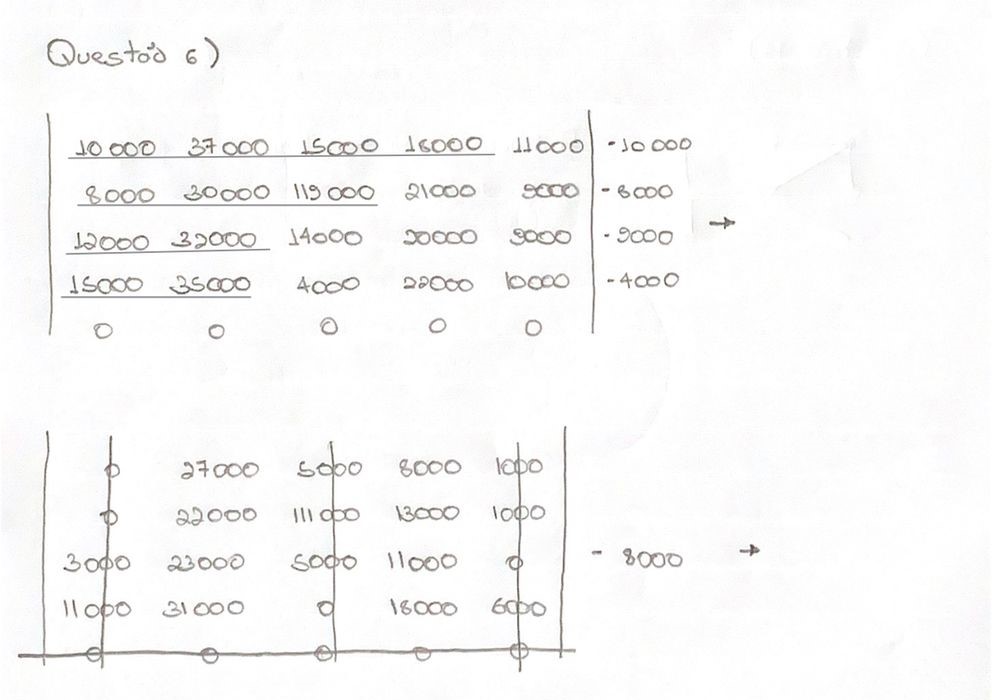 Questão 6)
10 000 37 000 15000 18000 11000 -10 000
8000 30000 119 000 21000 9000 -8000
12000 32000 14000 20000 9000 -9000 →
15000 35000 4000 22000 10000 -4000
0 0 0 0 0
0 27000 5000 8000 1000
0 22000 111 000 13000 1000
3000 23000 5000 11000 0 - 8000 →
11000 31000 0 18000 6000
0 0 0 0 0